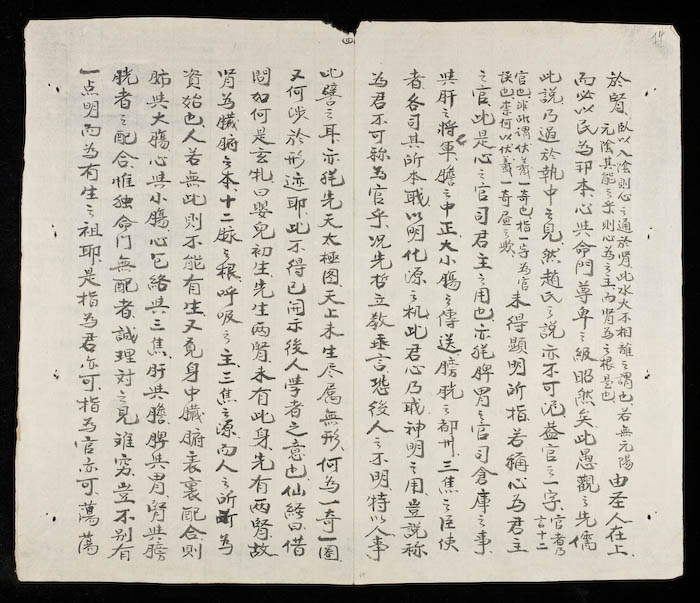 於腎臥以入陰則心之通於腎此水火不相離之謂也若無元陽
元陰其能之乎則心為之主而腎為之根是也由圣人在上
而必以民為邦本心與命門尊卑之級昭然矣此愚觀之先儒
此說乃過於執中之見然趙氏之說亦不可泥蓋官之一字官者乃言十二
官也非所謂伏羲一奇也指一字為官
誤也李何以伏羲一奇屬之歟未得顯明所指若稱心為君主
之官此是心之官司君主之用也亦猶脾胃之官司倉庫之事
與肝之將軍膽之中正大小腸之傳送膀胱之都州三焦之臣使
者各司其所本職以明化源之机此君心乃或神明之用豈說称
為君不可称為官乎况先哲立教垂言恐後人之不明特以人事
此譬之耳亦猶先天太極图天上未生尽屬無形何為一奇一圈
又何涉於形迹耶此不得已開示後人孛者之意也仙經曰借
問如何是玄牝曰嬰兒初生先生兩腎未有此身先有兩腎故
腎為臟腑之本十二脉之根呼吸之主三焦之源而人之所以為
資始也人若無此則不能有生又覓身中臟腑表裏配合則
肺與大腸心與小腸心包絡與三焦肝與膽脾與胃腎與膀
胱者之配合惟独命門無配者誠理对之見难穷豈不别有
一点明而為有生之祖耶是指為君亦可指為官亦可蕩蕩
四
14